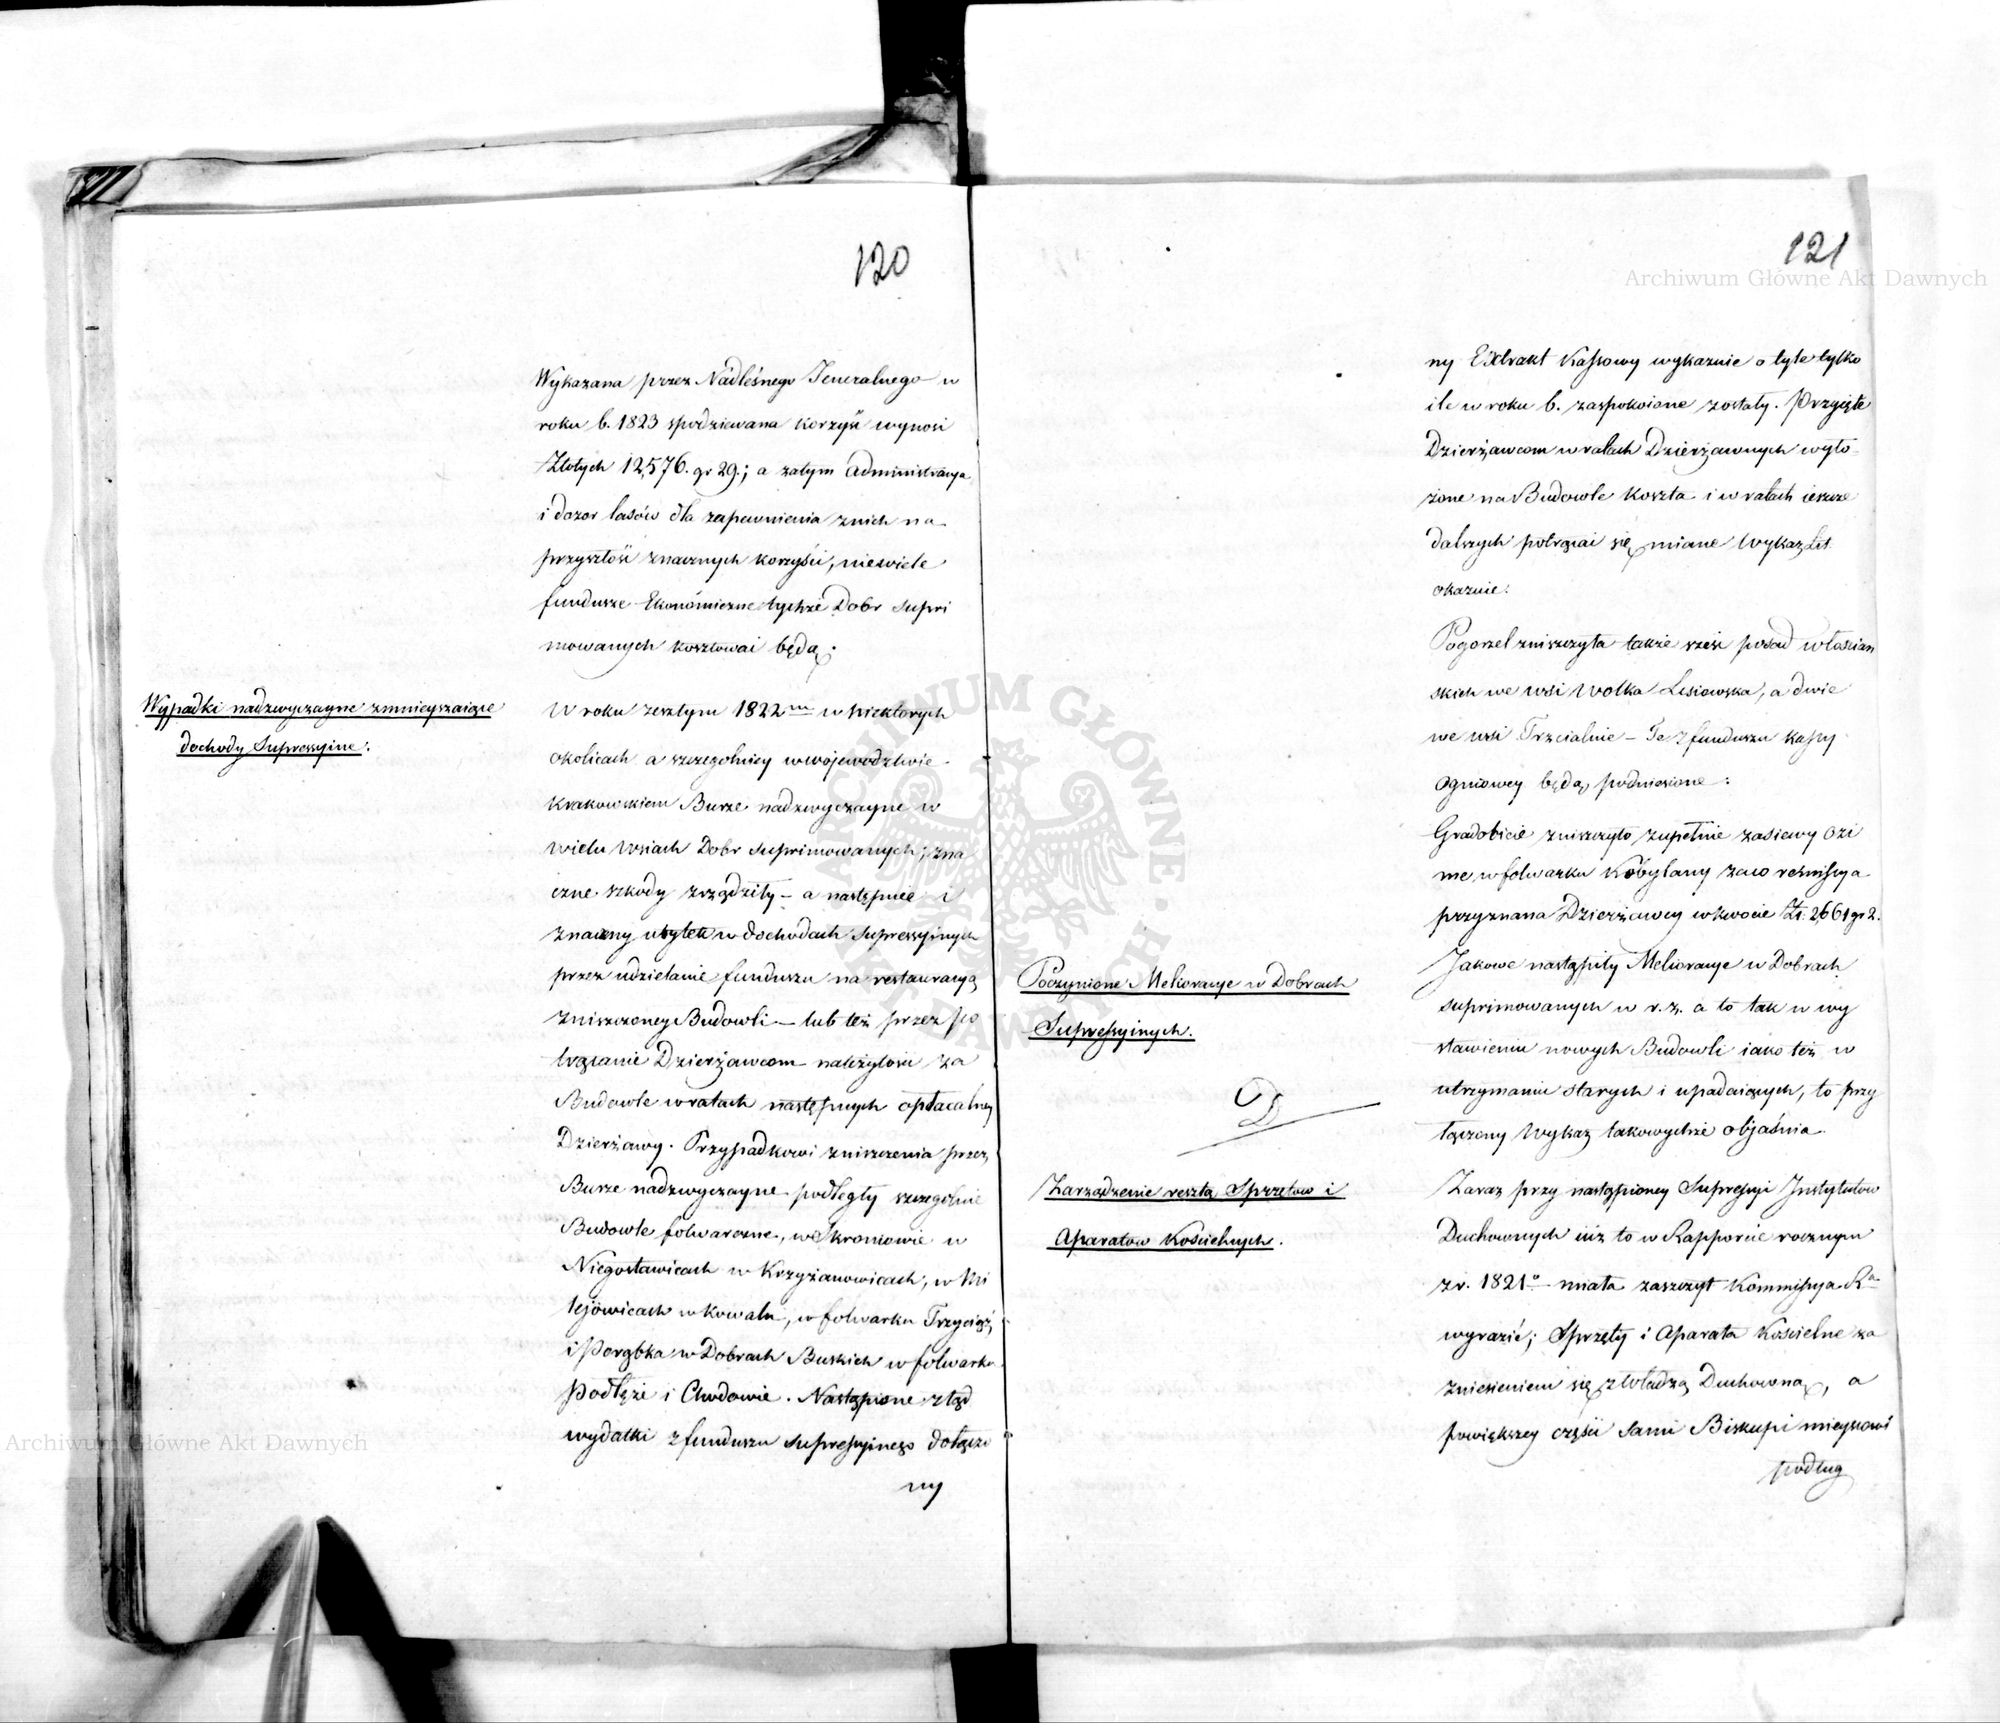 120
Wykazana przez Nadleśnego Jeneralnego w
roku b. 1823 spodziewana korzyść wynosi
Złotych 12,576. gr 29.; a zatym administracya
i dozor lasów dla zapewnienia z nich na
przyszłość znacznych korzyści, niewiele
fundusze Ekonomiczne tychże Dobr supri
mowanych kosztować będą.
Wypadki nadzwyczayne zmnieyszaiące
dochody Supressyine.
W roku zeszłym 1822 m w niektorych
okolicach a szczegolniey w wojewodztwie
Krakowskiem Burze nadzwyczayne w
wielu wsiach Dobr suprimowanych, zna
czne szkody zrządziły – a następnie i
znaczny ubytek w dochodach supressyinych
przez udzielanie funduszu na restauracyą
zniszczoney Budowli – lub też przez po
trącanie Dzierżawcom należytości za
Budowle w ratach następnych opłacalney
Dzierżawy. Przypadkowi zniszczenia przez
Burze nadzwyczayne podległy szczegolnie
Budowle folwarczne, w Skroniowie w
Niegosławicach w Krzyżanowicach, w Mi
lejowicach w Kowalu, w folwarku Trzyciąż,
i Porąbka w Dobrach Buskich w folwarku
Podłęże i Chodowie. Nastąpione ztąd
wydatki z funduszu supressyinego dołączo
ny
121
ny Extrakt Kassowy wykaznie o tyle tylko
ile w roku b. zaspokoione zostały. Przyięte
Dzierżawcom w ratach Dzierżawnych wyło-
żone na Budowle koszta i w ratach ieszcze
dalszych potrącać się miane Wykaz Lit.
okaznie.
Pogorzel zniszczyła także sześć posad włościan
skich we wsi Wolka Lisiowska, a dwie
we wsi Trzcialnie – Te z funduszu kassy
Ogniowey będą podniesione:
Gradobicie zniszczyło zupełnie zasiewy ozi
me w folwarku Kobylany zaco remissya
przyznana Dzierżawcy w kwocie Zł. 2661 gr 2.
Poczynione Melioracye w Dobrach
Supressyinych.
Jakowe nastąpiły Melioracye w Dobrach
suprimowanych w r. z. a to tak w wy
stawieniu nowych Budowli iako też w
utrzymaniu starych i upadaiących, to przy
łączony Wykaz takowychże objaśnia.
D
Zarządzenie resztą Sprzętow i
Aparatow Kościelnych.
Zaraz przy nastąpioney Supressyi Instytutow
Duchownych iuż to w Rapporcie rocznym
z r. 1821o miała zaszczyt Kommissya Ra
wyrazić; Sprzęty i Aparata Kościelne za
zniesieniem się z władzą Duchowną, a
powiększey części sami Biskupi mieyscowi
podług
Archiwum Główne Akt Dawnych
Archiwum Główne Akt Dawnych
ARCHIWUM GŁÓWNE AKT DAWNYCH